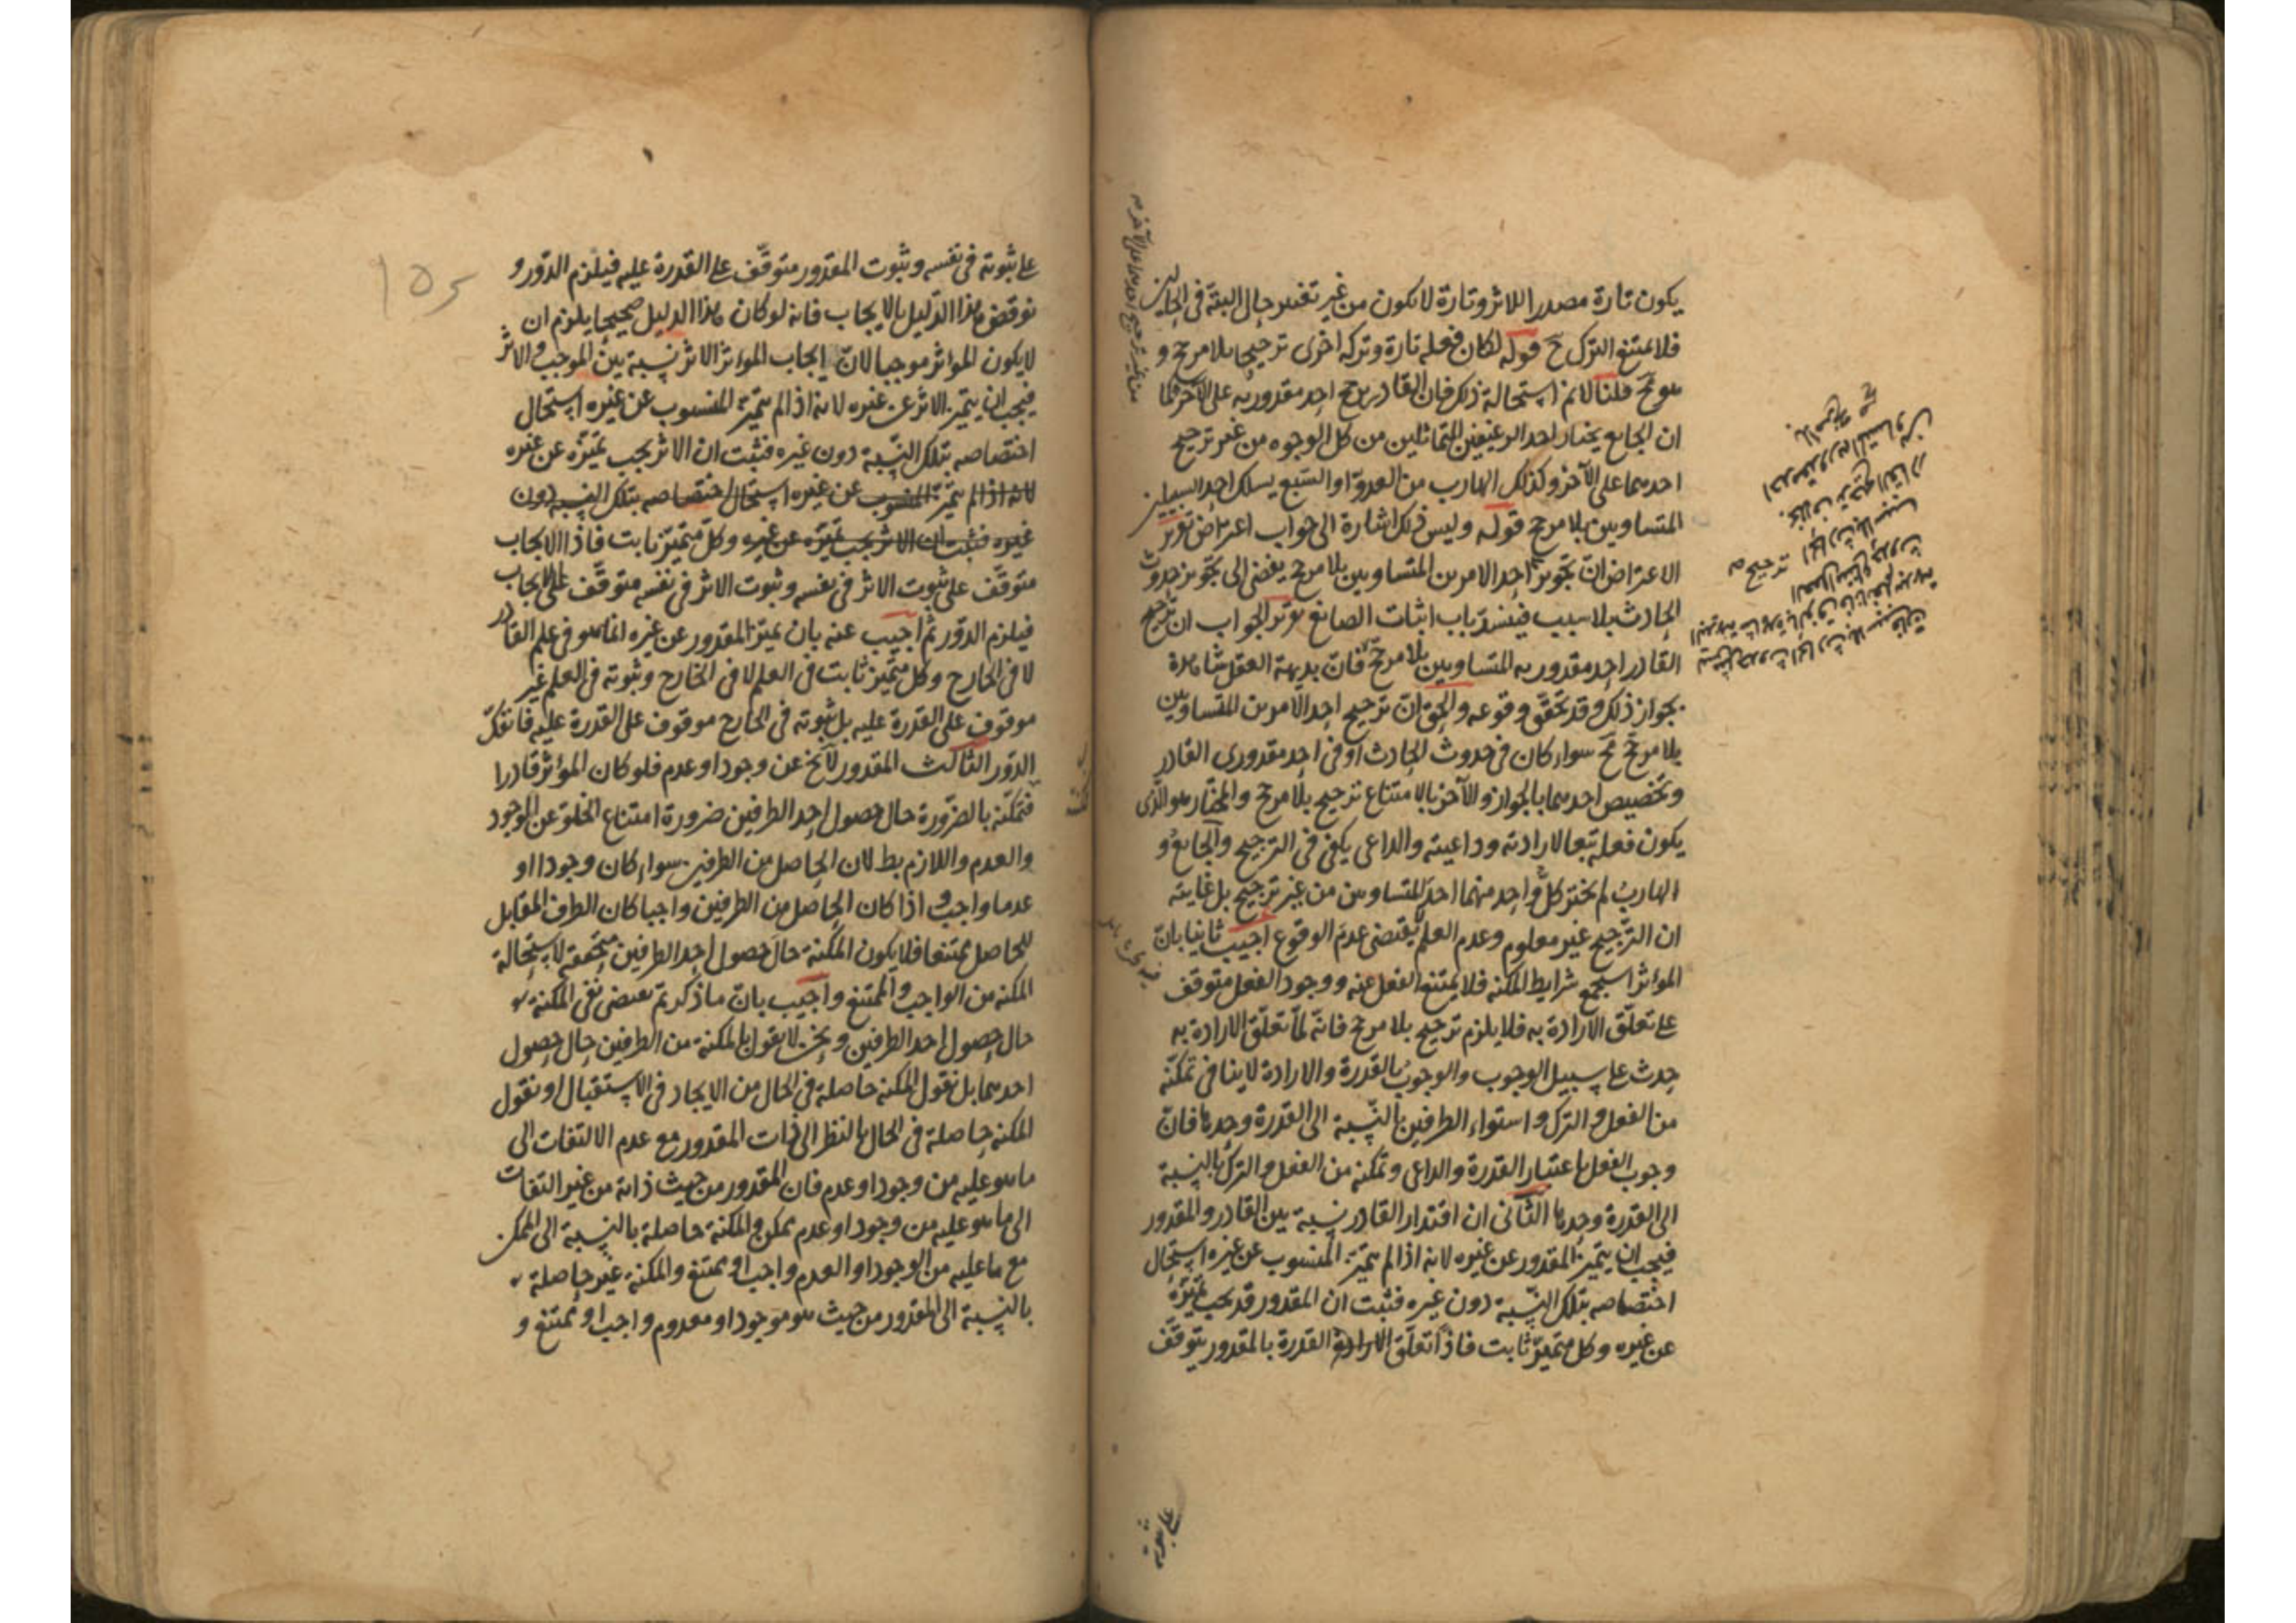 يكون تارة مصدرا للاثر وتارة لا يكون من غير تغير حال البتة في الحالين
فلا يمتنع الترك ح قوله لكان فعله تارة وتركه اخرى ترجيحا بلا مرجح و
هو مح قلنا لا نم استحالة ذلك فان القادر يرجح احد مقدوريه على الآخر كما
ان الجايع يختار احد الرغيفين المتماثلين من كل الوجوه من غير ترجيح
احدهما على الآخر وكذلك الهارب من العدو او السبع يسلك احد السبيلين
المتساويين بلا مرجح قوله وليس ذلك اشارة الى جواب اعتراض تقرير
الاعتراض ان تجويز احد الامرين المتساويين بلا مرجح يفضى الى تجويز حدوث
الحادث بلا سبب فينسد باب اثبات الصانع تقرير الجواب ان ترجيح
القادر احد مقدوريه المتساويين بلا مرجح فان بديهة العقل شاهدة
بجواز ذلك وقد تحقق وقوعه والحق ان ترجيح احد الامرين المتساويين
بلا مرجح مح سواء كان في حدوث الحادث او في احد مقدورى القادر
وتخصيص احدهما بالجواز والآخر بالامتناع ترجيح بلا مرجح والمختار هو الذى
يكون فعله تبعا لارادته وداعيته والداعى يكفى في الترجيح والجايع و
الهارب لم يختر كل واحد منهما احد المتساويين من غير ترجيح بل غايته
ان الترجيح غير معلوم وعدم العلم لا يقتضى عدم الوقوع اجيب ثانيا بان
المؤثر استجمع شرايط المكنة فلا يمتنع الفعل عنه ووجود الفعل متوقف
على تعلق الارادة به فلا يلزم ترجيح بلا مرجح فانه لما تعلق الارادة به
حدث على سبيل الوجوب والوجوب بالقدرة والارادة لا ينافى تمكنه
من الفعل والترك واستواء الطرفين بالنسبة الى القدرة وحدها فان
وجوب الفعل باعتبار القدرة والداعى وتمكنه من الفعل والترك بالنسبة
الى القدرة وحدها الثانى ان اقتدار القادر نسبة بين القادر والمقدور
فيجب ان يتميز المقدور عن غيره لانه اذا لم يتميز المنسوب عن غيره استحال
اختصاصه بتلك النسبة دون غيره فثبت ان المقدور قد يجب تميزه
عن غيره وكل متميز ثابت فاذا تعلق الارادة القدرة بالمقدور يتوقف
على ثبوته
على ثبوته في نفسه وثبوت المقدور متوقف على القدرة عليه فيلزم الدور و
نوقض هذا الدليل بالايجاب فانه لو كان هذا الدليل صحيحا يلزم ان
لا يكون المؤثر موجبا لان ايجاب المؤثر الاثر نسبة بين الموجب والاثر
فيجب ان يتميز الاثر عن غيره لانه اذا لم يتميز المنسوب عن غيره استحال
اختصاصه بتلك النسبة دون غيره فثبت ان الاثر يجب تميزه عن غيره
لانه اذا لم يتميز المنسوب عن غيره استحال اختصاصه بتلك النسبة دون
غيره فثبت ان الاثر يجب تميزه عن غيره وكل متميز ثابت فاذا الايجاب
متوقف على ثبوت الاثر في نفسه وثبوت الاثر في نفسه متوقف على الايجاب
فيلزم الدور ثم اجيب عنه بان تميز المقدور عن غيره انما هو في علم القادر
لا في الخارج وكل متميز ثابت في العلم لا في الخارج وثبوته في العلم غير
موقوف على القدرة عليه بل ثبوته في الخارج موقوف على القدرة عليه فانفك
الدور الثالث المقدور لا يخ عن وجود او عدم فلو كان المؤثر قادرا
فتمكنه بالضرورة حال حصول احد الطرفين ضرورة امتناع الخلو عن الوجود
والعدم واللازم بط لان الحاصل من الطرفين سواء كان وجودا او
عدما واجب واذا كان الحاصل من الطرفين واجبا كان الطرف المقابل
للحاصل ممتنعا فلا يكون المكنة حال حصول احد الطرفين متحققه لاستحالة
المكنة من الواجب والممتنع واجيب بان ما ذكرتم يقتضى نفى المكنة
حال حصول احد الطرفين ونحن لا نقول بالمكنة من الطرفين حال حصول
احدهما بل نقول المكنة حاصلة في الحال من الايجاد في الاستقبال او نقول
المكنة حاصلة في الحال بالنظر الى ذات المقدور مع عدم الالتفات الى
ما هو عليه من وجود او عدم فان المقدور من حيث ذاته من غير التفات
الى ما هو عليه من وجود او عدم ممكن والمكنة حاصلة بالنسبة الى الممكن
مع ما عليه من الوجود او العدم واجب او ممتنع والمكنة غير حاصلة
بالنسبة الى المقدور من حيث هو موجود او معدوم واجب او ممتنع و